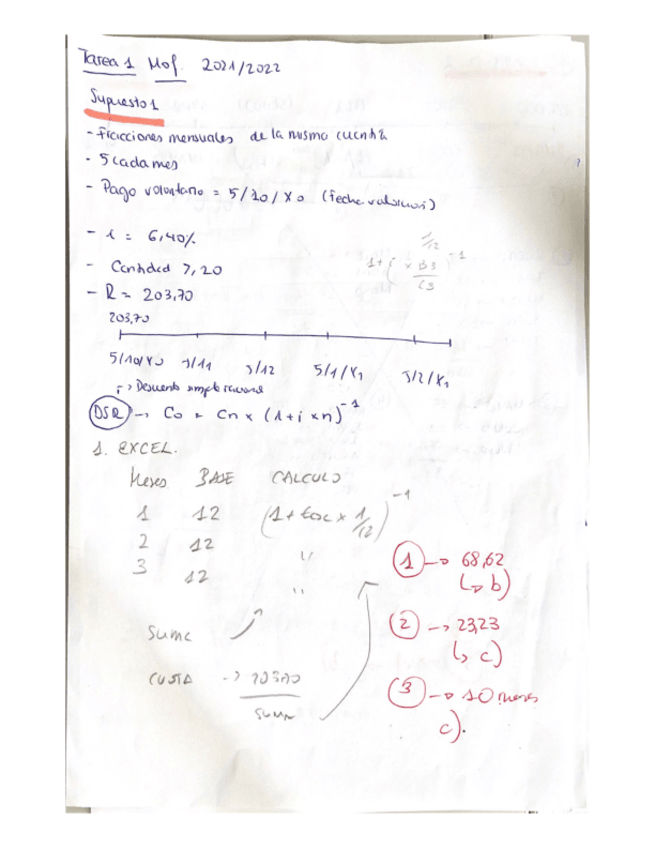 Tarea 1 Mof. 2021/2022
Supuesto 1
- Fracciones mensuales de la misma cuantía
- 5 cada mes
- Pago voluntario = 5/10/X0 (fecha valoración)
- i = 6,40%
- Cantidad 7,20
- R = 203,70
203,70
5/10/X0 5/11 5/12 5/1/X1 5/2/X1
Descuento simple racional
DSR → Co = Cn x (1+i xn)^-1
1. EXCEL.
Meses BASE CALCULO
1 12 (1+ x 1/12)^-1
2 12 "
3 12 "
Suma
→ 203,70
suma
1 → 68,62
↳ b)
2 → 23,23
↳ c)
3 → 10 meses
c).